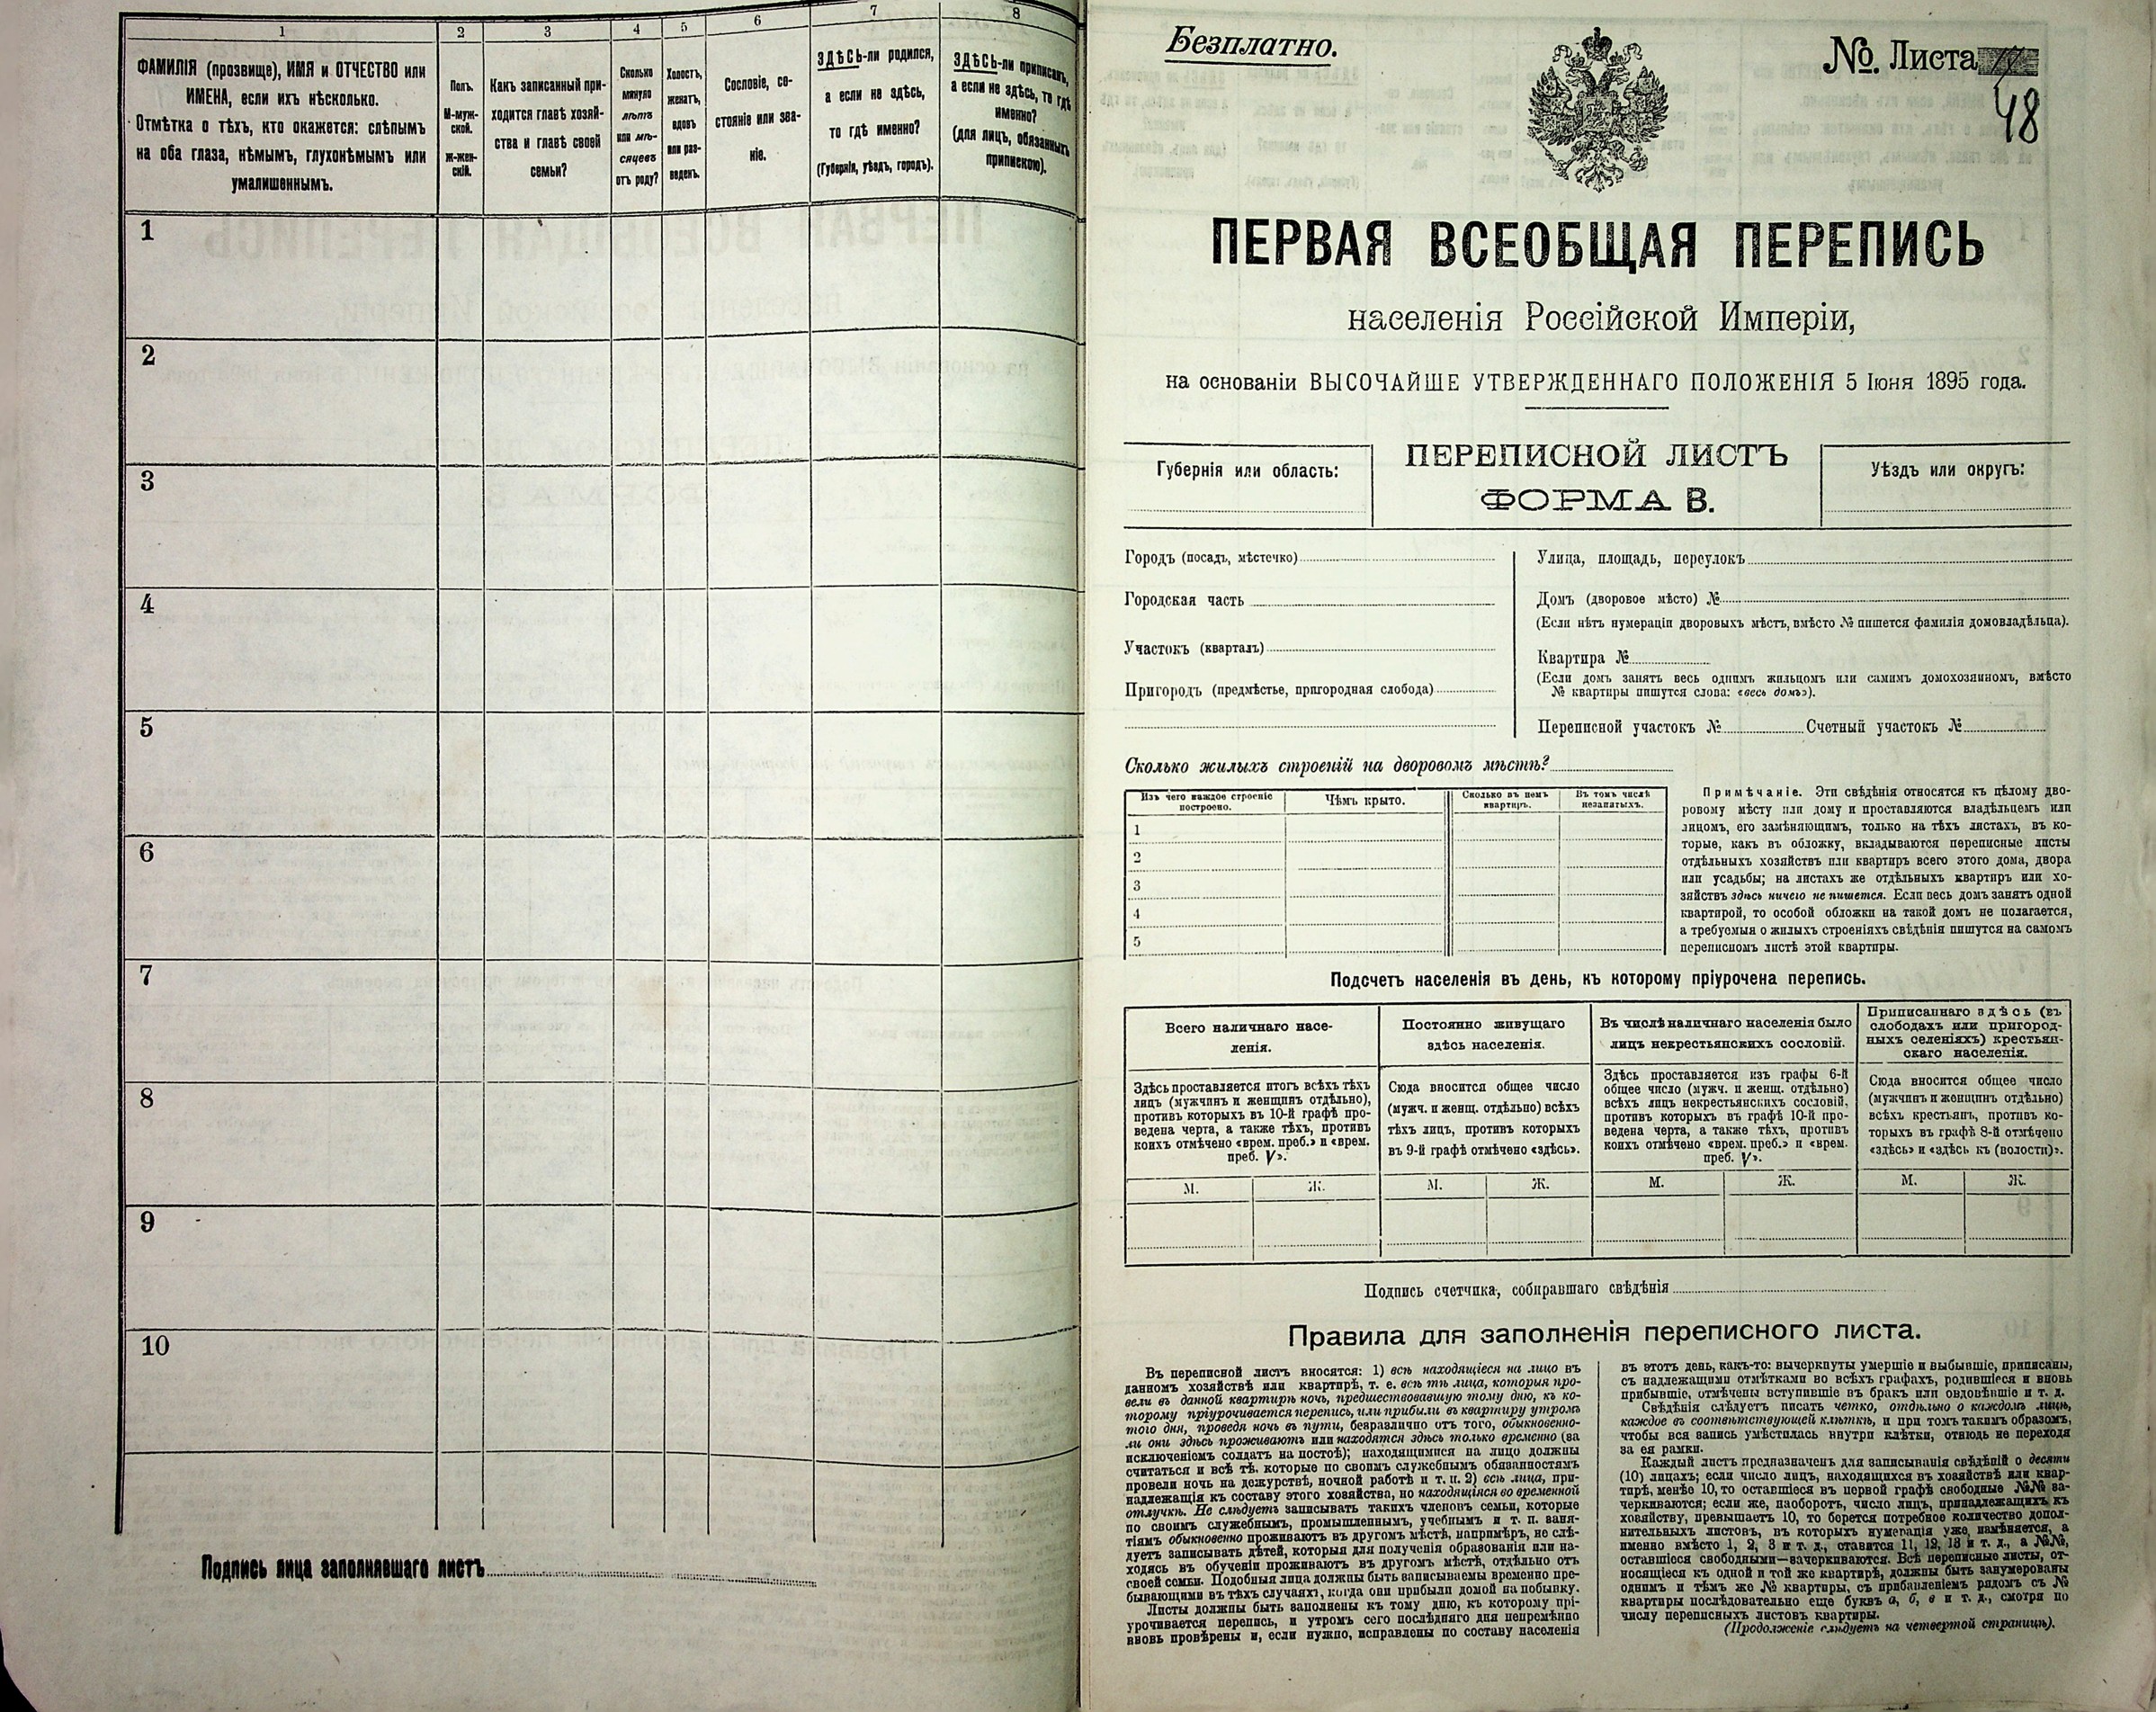 1 2 3 4 5 6 7 8
ФАМИЛІЯ (прозвище), ИМЯ и ОТЧЕСТВО или
ИМЕНА, если ихъ нѣсколько.
Отмѣтка о тѣхъ, кто окажется: слѣпымъ
на оба глаза, нѣмымъ, глухонѣмымъ или
умалишеннымъ.
Полъ.
М-муж-
ской.
ж-жен-
скій.
Какъ записанный при-
ходится главѣ хозяй-
ства и главѣ своей
семьи?
Сколько
минуло
лѣтъ
или мѣ-
сяцевъ
отъ роду?
Холостъ,
женатъ,
вдовъ
или раз-
веденъ.
Сословіе, со-
стояніе или зва-
ніе.
ЗДѢСЬ-ли родился,
а если не здѣсь,
то гдѣ именно?
(Губернія, уѣздъ, городъ).
ЗДѢСЬ-ли приписанъ,
а если не здѣсь, то гдѣ
именно?
(для лицъ, обязанныхъ
припискою).
1
2
3
4
5
6
7
8
9
10
Подпись лица заполнявшаго листъ
Безплатно.
№. Листа
48
ПЕРВАЯ ВСЕОБЩАЯ ПЕРЕПИСЬ
населенія Россійской Имперіи,
на основаніи ВЫСОЧАЙШЕ УТВЕРЖДЕННАГО ПОЛОЖЕНІЯ 5 Іюня 1895 года.
Губернія или область:
ПЕРЕПИСНОЙ ЛИСТЪ
ФОРМА В.
Уѣздъ или округъ:
Городъ (посадъ, мѣстечко)
Городская часть
Участокъ (кварталъ)
Пригородъ (предмѣстье, пригородная слобода)
Улица, площадь, переулокъ
Домъ (дворовое мѣсто) №
(Если нѣтъ нумераціи дворовыхъ мѣстъ, вмѣсто № пишется фамилія домовладѣльца).
Квартира №
(Если домъ занятъ весь однимъ жильцомъ или самимъ домохозяиномъ, вмѣсто
№ квартиры пишутся слова: «весь домъ»).
Переписной участокъ № Счетный участокъ №
Сколько жилыхъ строеній на дворовомъ мѣстѣ?
Изъ чего каждое строеніе
построено.
Чѣмъ крыто.
Сколько въ немъ
квартиръ.
Въ томъ числѣ
незанятыхъ.
1
2
3
4
5
Примѣчаніе. Эти свѣдѣнія относятся къ цѣлому дво-
ровому мѣсту или дому и проставляются владѣльцемъ или
лицомъ, его замѣняющимъ, только на тѣхъ листахъ, въ ко-
торые, какъ въ обложку, вкладываются переписные листы
отдѣльныхъ хозяйствъ или квартиръ всего этого дома, двора
или усадьбы; на листахъ же отдѣльныхъ квартиръ или хо-
зяйствъ здѣсь ничего не пишется. Если весь домъ занятъ одной
квартирой, то особой обложки на такой домъ не полагается,
а требуемыя о жилыхъ строеніяхъ свѣдѣнія пишутся на самомъ
переписномъ листѣ этой квартиры.
Подсчетъ населенія въ день, къ которому пріурочена перепись.
Всего наличнаго насе-
ленія.
Постоянно живущаго
здѣсь населенія.
Въ числѣ наличнаго населенія было
лицъ некрестьянскихъ сословій.
Приписаннаго здѣсь (въ
слободахъ или пригород-
ныхъ селеніяхъ) крестьян-
скаго населенія.
Здѣсь проставляется итогъ всѣхъ тѣхъ
лицъ (мужчинъ и женщинъ отдѣльно),
противъ которыхъ въ 10-й графѣ про-
ведена черта, а также тѣхъ, противъ
коихъ отмѣчено «врем. преб.» и «врем.
преб. V».
Сюда вносится общее число
(мужч. и женщ. отдѣльно) всѣхъ
тѣхъ лицъ, противъ которыхъ
въ 9-й графѣ отмѣчено «здѣсь».
Здѣсь проставляется изъ графы 6-й
общее число (мужч. и женщ. отдѣльно)
всѣхъ лицъ некрестьянскихъ сословій,
противъ которыхъ въ графѣ 10-й про-
ведена черта, а также тѣхъ, противъ
коихъ отмѣчено «врем. преб.» и «врем.
преб. V».
Сюда вносится общее число
(мужчинъ и женщинъ отдѣльно)
всѣхъ крестьянъ, противъ ко-
торыхъ въ графѣ 8-й отмѣчено
«здѣсь» и «здѣсь къ (волости)».
М. Ж. М. Ж. М. Ж. М. Ж.
Подпись счетчика, собиравшаго свѣдѣнія
Правила для заполненія переписного листа.
Въ переписной листъ вносятся: 1) всѣ находящіеся на лицо въ
данномъ хозяйствѣ или квартирѣ, т. е. всѣ тѣ лица, которыя про-
вели въ данной квартирѣ ночь, предшествовавшую тому дню, къ ко-
торому пріурочивается перепись, или прибыли въ квартиру утромъ
того дня, проведя ночь въ пути, безразлично отъ того, обыкновенно-
ли они здѣсь проживаютъ или находятся здѣсь только временно (за
исключеніемъ солдатъ на постоѣ); находящимися на лицо должны
считаться и всѣ тѣ, которые по своимъ служебнымъ обязанностямъ
провели ночь на дежурствѣ, ночной работѣ и т. п. 2) всѣ лица, при-
надлежащія къ составу этого хозяйства, но находящіяся во временной
отлучкѣ. Не слѣдуетъ записывать такихъ членовъ семьи, которые
по своимъ служебнымъ, промышленнымъ, учебнымъ и т. п. заня-
тіямъ обыкновенно проживаютъ въ другомъ мѣстѣ, напримѣръ, не слѣ-
дуетъ записывать дѣтей, которыя для полученія образованія или на-
ходясь въ обученіи проживаютъ въ другомъ мѣстѣ, отдѣльно отъ
своей семьи. Подобныя лица должны быть записываемы временно пре-
бывающими въ тѣхъ случаяхъ, когда они прибыли домой на побывку.
Листы должны быть заполнены къ тому дню, къ которому прі-
урочивается перепись, и утромъ сего послѣдняго дня непремѣнно
вновь провѣрены и, если нужно, исправлены по составу населенія
въ этотъ день, какъ-то: вычеркнуты умершіе и выбывшіе, приписаны,
съ надлежащими отмѣтками во всѣхъ графахъ, родившіеся и вновь
прибывшіе, отмѣчены вступившіе въ бракъ или овдовѣвшіе и т. д.
Свѣдѣнія слѣдуетъ писать четко, отдѣльно о каждомъ лицѣ,
каждое въ соотвѣтствующей клѣткѣ, и при томъ такимъ образомъ,
чтобы вся запись умѣстилась внутри клѣтки, отнюдь не переходя
за ея рамки.
Каждый листъ предназначенъ для записыванія свѣдѣній о десяти
(10) лицахъ; если число лицъ, находящихся въ хозяйствѣ или квар-
тирѣ, менѣе 10, то оставшіеся въ первой графѣ свободные №№ за-
черкиваются; если же, наоборотъ, число лицъ, принадлежащихъ къ
хозяйству, превышаетъ 10, то берется потребное количество допол-
нительныхъ листовъ, въ которыхъ нумерація уже измѣняется, а
именно вмѣсто 1, 2, 3 и т. д., ставится 11, 12, 13 и т. д., а №№,
оставшіеся свободными—зачеркиваются. Всѣ переписные листы, от-
носящіеся къ одной и той же квартирѣ, должны быть занумерованы
однимъ и тѣмъ же № квартиры, съ прибавленіемъ рядомъ съ №
квартиры послѣдовательно еще буквъ а, б, в и т. д., смотря по
числу переписныхъ листовъ квартиры.
(Продолженіе слѣдуетъ на четвертой страницѣ).